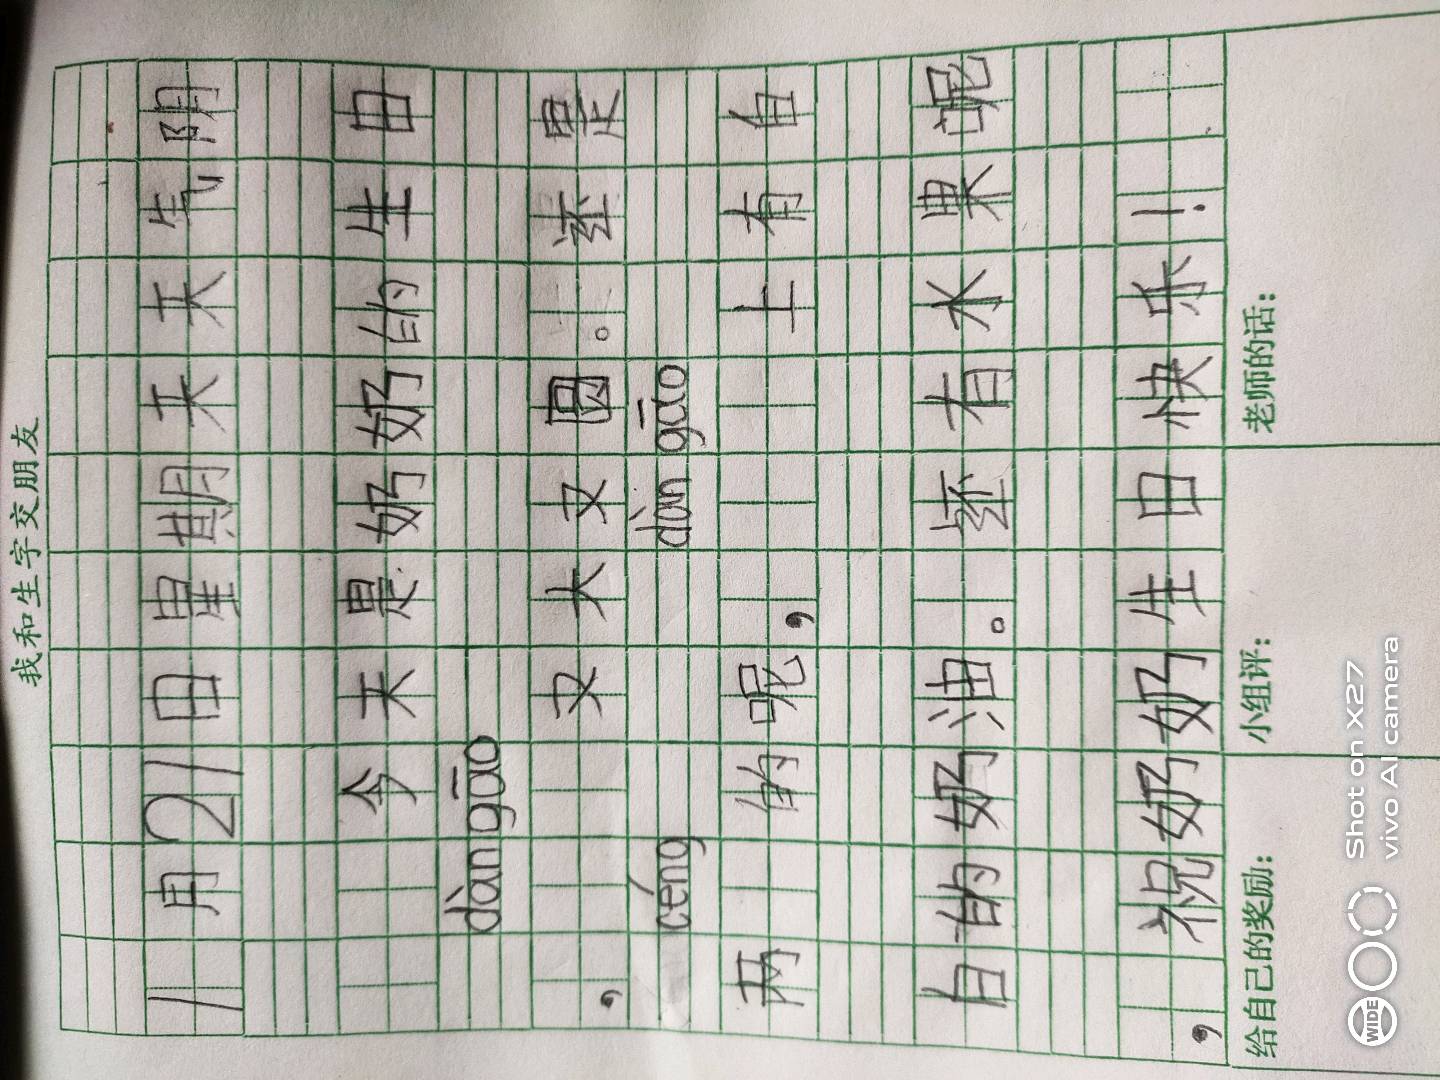 我和生字交朋友
1月21日星期天天气阴
今天是奶奶的生日
dàn gāo
，又大又圆。还是
céng dàn gāo
两的呢，上有白
白的奶油。还有水果呢
，祝奶奶生日快乐！
给自己的奖励： 小组评： 老师的话：
WIDE
Shot on X27
vivo AI camera